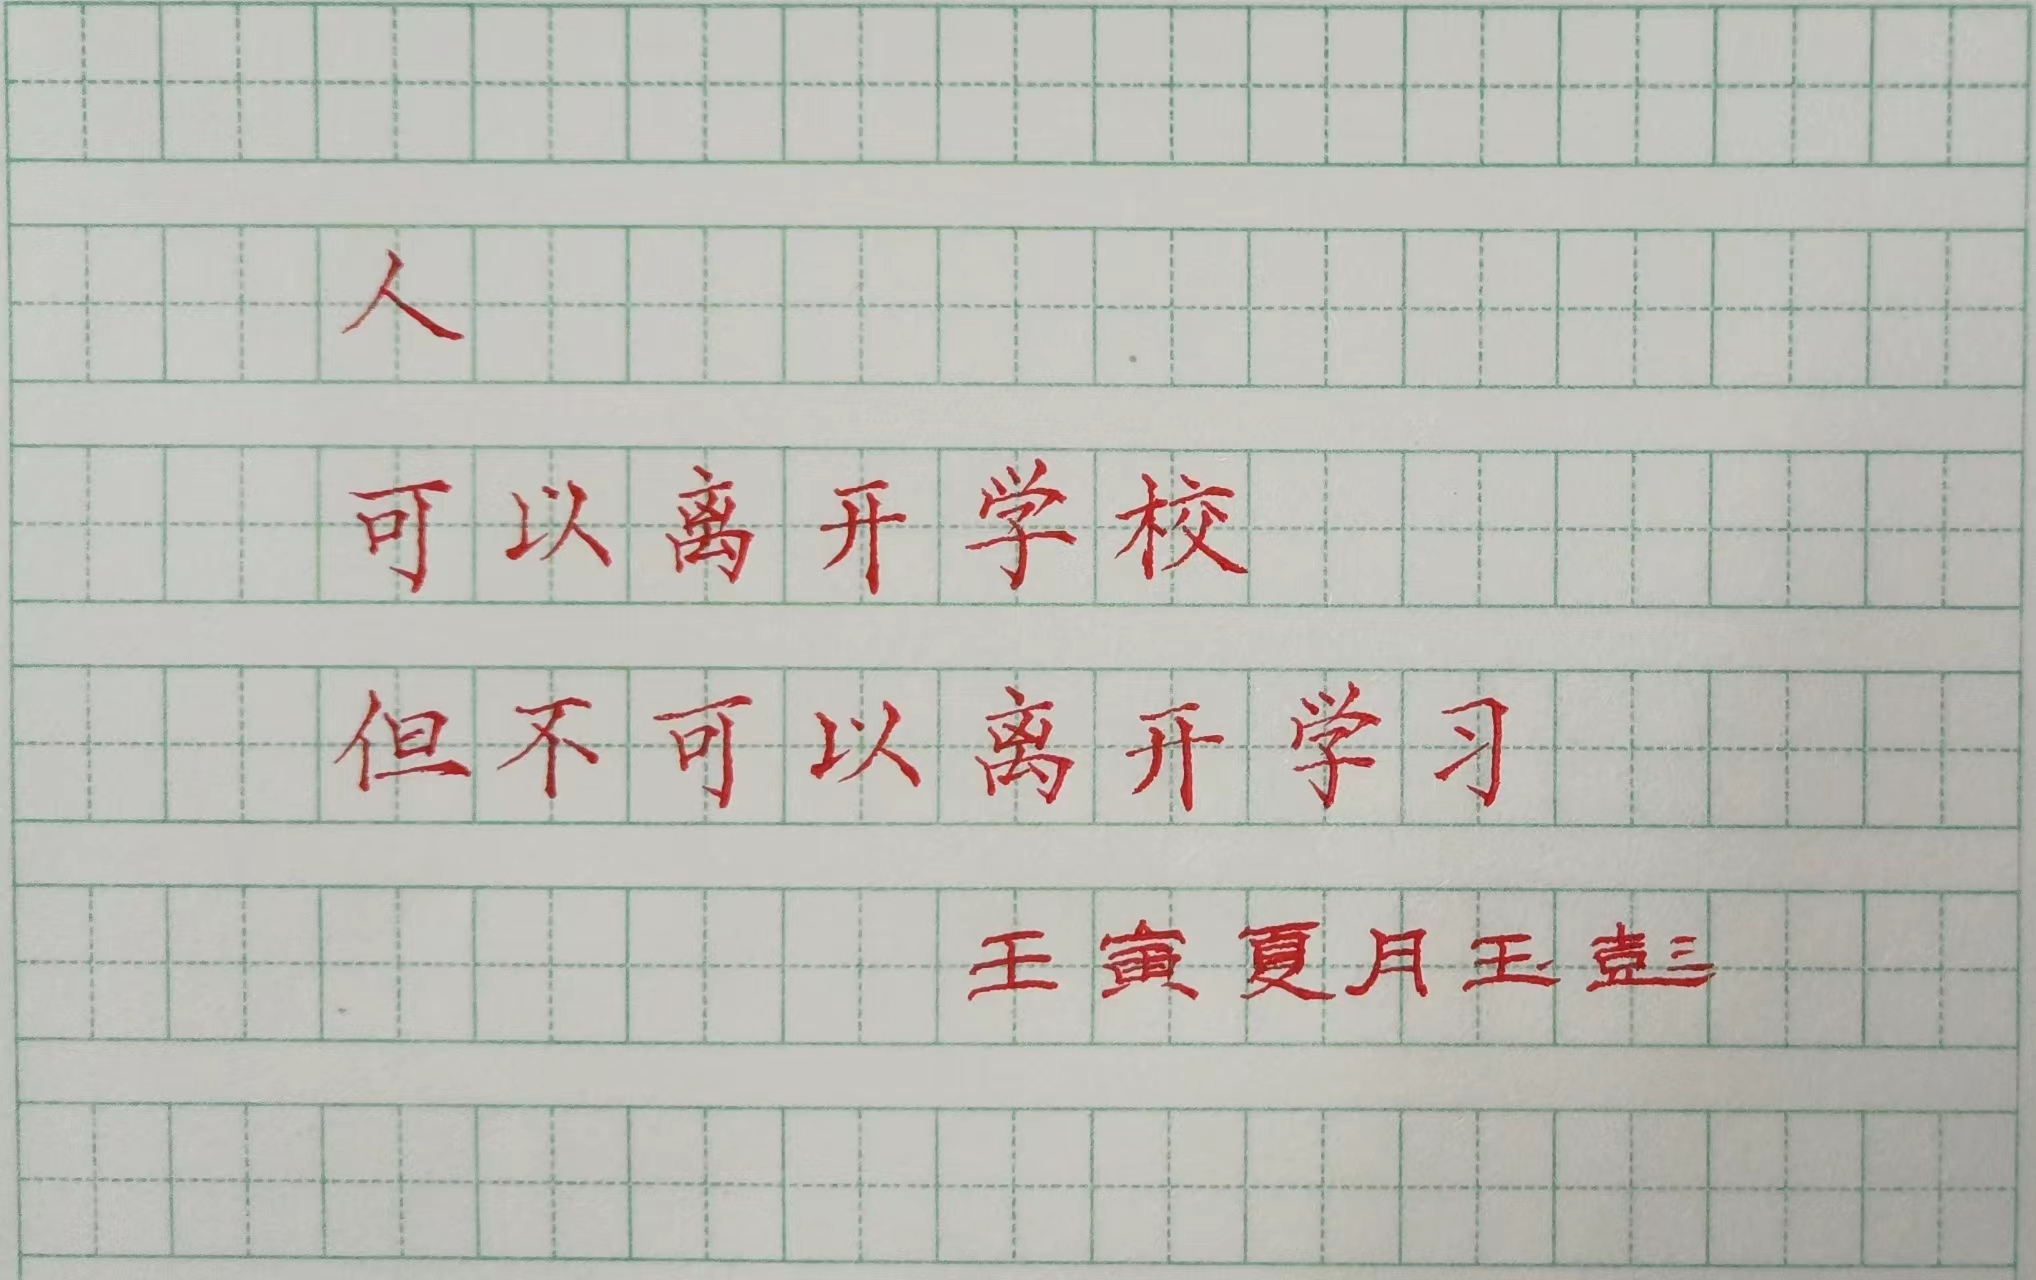 人
可以离开学校
但不可以离开学习
壬寅夏月玉彭